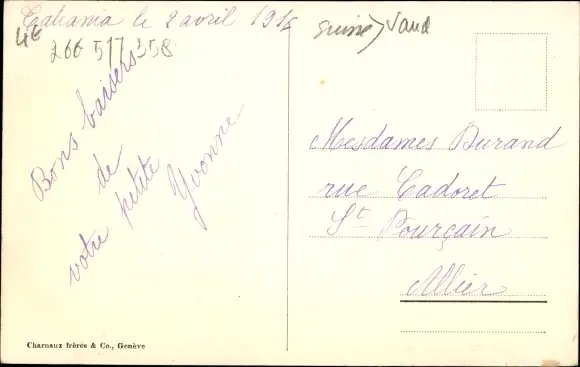 le 2 avril 191
4€
266 517 358
Suisse > Vaud
Bons baisers
de
votre petite
Yvonne
Mesdames Durand
rue Cadoret
St Pourçain
Allier
Charnaux frères & Co., Genève